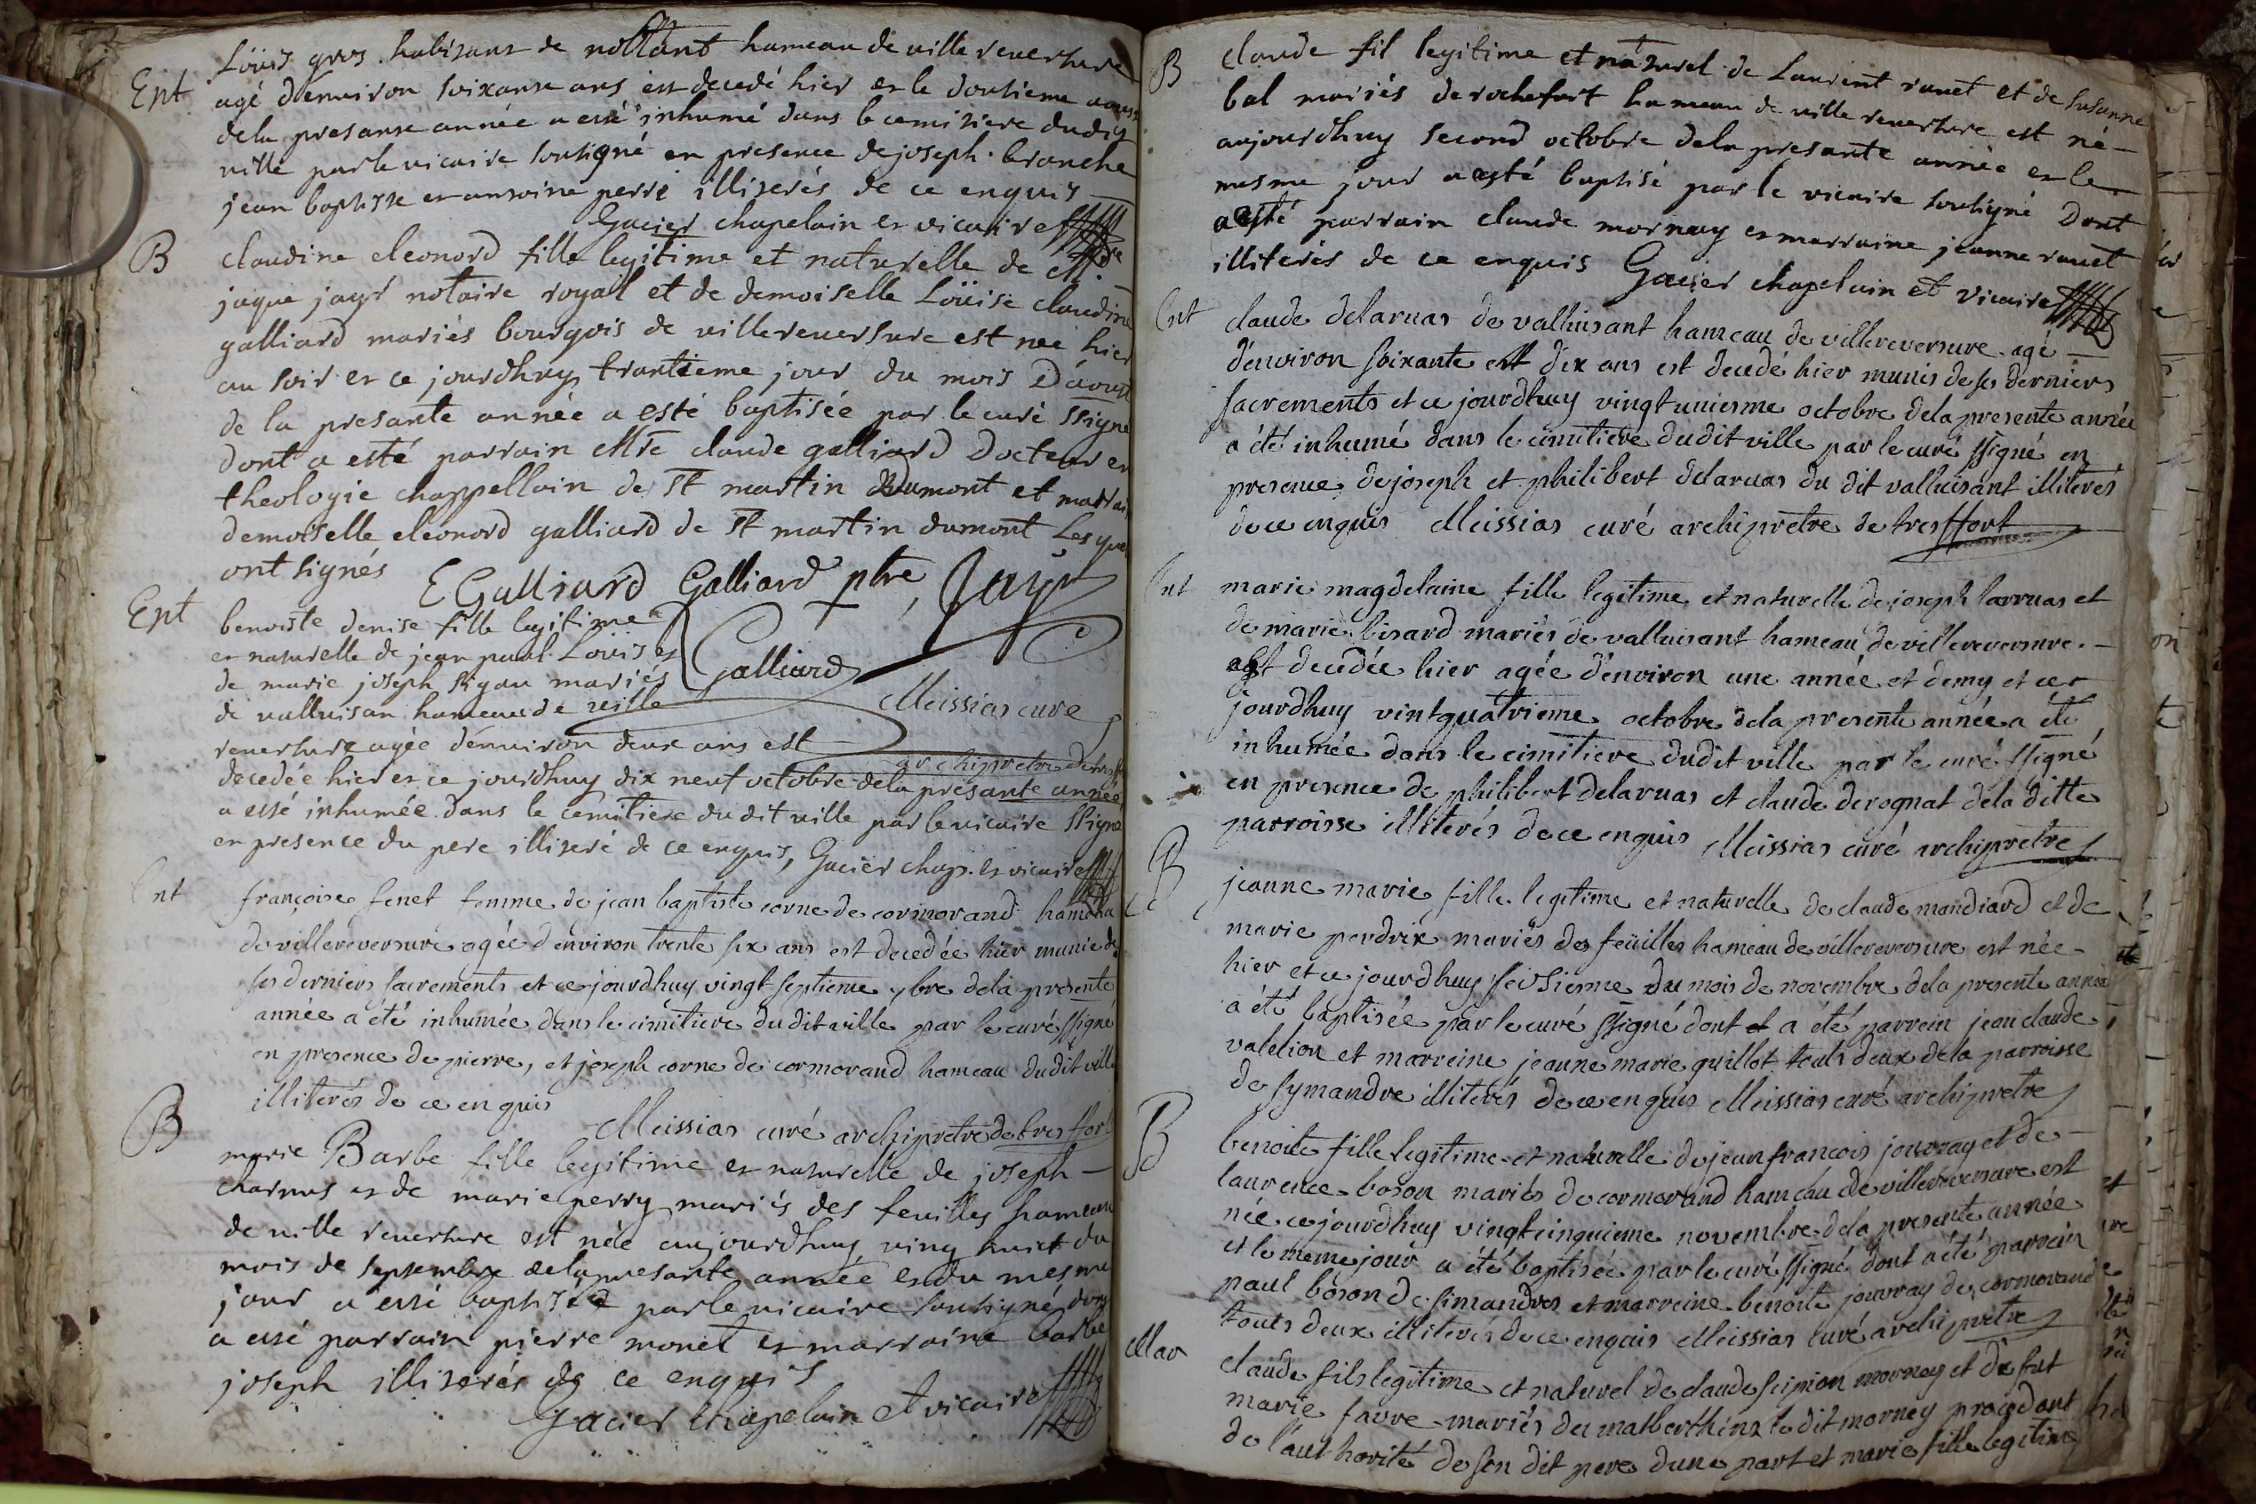 Ent
Loüis gros habitant de nollant hameau de villereversure
agé denviron soixante ans est decedé hier et le douzieme aoust
de la presante année a esté inhumé dans le cemitiere dudit
ville par le vicaire sousigné en presence de joseph branche
jean baptiste et antoine perré illiterés de ce enquis
Gacier chapelain et vicaire
B
claudine eleonord fille legitime et naturelle de Mre
jaque jayr notaire royal et de demoiselle Loüise claudine
galliard mariés bourgois de villereversure est née hier
au soir et ce jourdhuy trantieme jour du mois Daoust
de la presante année a esté baptisée par le curé ssigné
dont a esté parrain Mre claude galliard Docteur en
theologie chappellain de St martin Dumont et marraine
demoiselle eleonord galliard de St martin dumont Lesquels
ont signés E Galliard Galliard ptre, Jayr
Galliard
Meissias curé
archipretre de tresfort
Ent
benoiste denise fille legitime
et naturelle de jean paul Loüis et
de marie joseph Rigau mariés
de valluisan hameau de ville
reversure agée denviron deux ans est
decedée hier et ce jourdhuy dix neuf octobre de la presante année
a esté inhumée dans le cemitiere dudit ville par le vicaire ssigné
en presence du pere illiteré de ce enquis, Gacier chap. et vicaire
Ent
françoise fenet femme de jean baptiste corne de cormorand hameau
de villereversure agée d'environ trente six ans est decedée hier munie de
ses derniers sacrements et ce jourdhuy vingt septieme 7bre dela presente
année a été inhumée dans le cimitiere dudit ville par le curé ssigné
en presence de pierre, et joseph corne de cormorand hameau dudit ville
illiterés de ce enquis Meissias curé archipretre de tresffort
B
marie Barbe fille legitime et naturelle de joseph
charnus et de marie perry mariés des feuilles hameau
de ville reversure est née aujourdhuy vingt huict du
mois de septembre de la presante année et du mesme
jour a esté baptisée par le vicaire soutigné dont
a esté parrain pierre monet et marraine barbe
joseph illiterés de ce enquis
Gacier chapelain et vicaire
B
claude fil legitime et naturel de Laurent ranet et de susanne
bal mariés de rochefort hameau de ville reversure est né
aujourdhuy second octobre dela presante année et le
mesme jour a esté baptisé par le vicaire soutigné Dont
a esté parrain claude mornay et marraine jeanne ranet
illiterés de ce enquis Gacier chapelain et vicaire
Ent
claude delaruas de valluisant hameau de villereversure agé
d'environ soixante et dix ans est decedé hier munis de ses derniers
sacrements et ce jourdhuy vingt uniesme octobre dela presente année
a été inhumé dans le cimitiere dudit ville par le curé ssigné en
presence de joseph et philibert delaruas du dit valluisant illiterés
de ce enquis Meissias curé archiprêtre de tresffort
Ent
marie magdelaine fille legitime et naturelle de joseph larruas et
de marie bisard mariés de valluisant hameau de villereversure
est decedée hier agée d'environ une année et demy et ce
jourdhuy vintquatrieme octobre dela presente année a été
inhumée dans le cimitiere dudit ville par le curé ssigné
en presence de philibert delaruas et claude derognat dela ditte
parroisse illiterés de ce enquis Meissias curé archipretre
B
jeanne marie fille legitime et naturelle de claude mandiard et de
marie perdrix mariés des feüilles hameau de villereversure est née
hier et ce jourdhuy seissieme du mois de novembre dela presente année
a été baptisée par le curé ssigné dont a été parrein jean claude
valelion et marreine jeanne marie guillot touts deux dela parroisse
de symandre illiterés de ce enquis Meissias curé archipretre
B
benoite fille legitime et naturelle de jean francois jouvray et de
laurence boson mariés de cormorand hameau de villereversure est
née ce jourdhuy vingtcinquieme novembre dela presente année
et le meme jour a été baptisée par le curé ssigné dont a été parrein
paul boson de simandres et marreine benoite jouvray de cormorand
touts deux illiterés de ce enquis Meissias curé archipretre
Mar
claude fils legitime et naturel de claude scipion mornay et de fut
marie favre mariés du matberthinz le dit mornay procedant
de l'authorité de son dit pere dune part et marie fille legitime